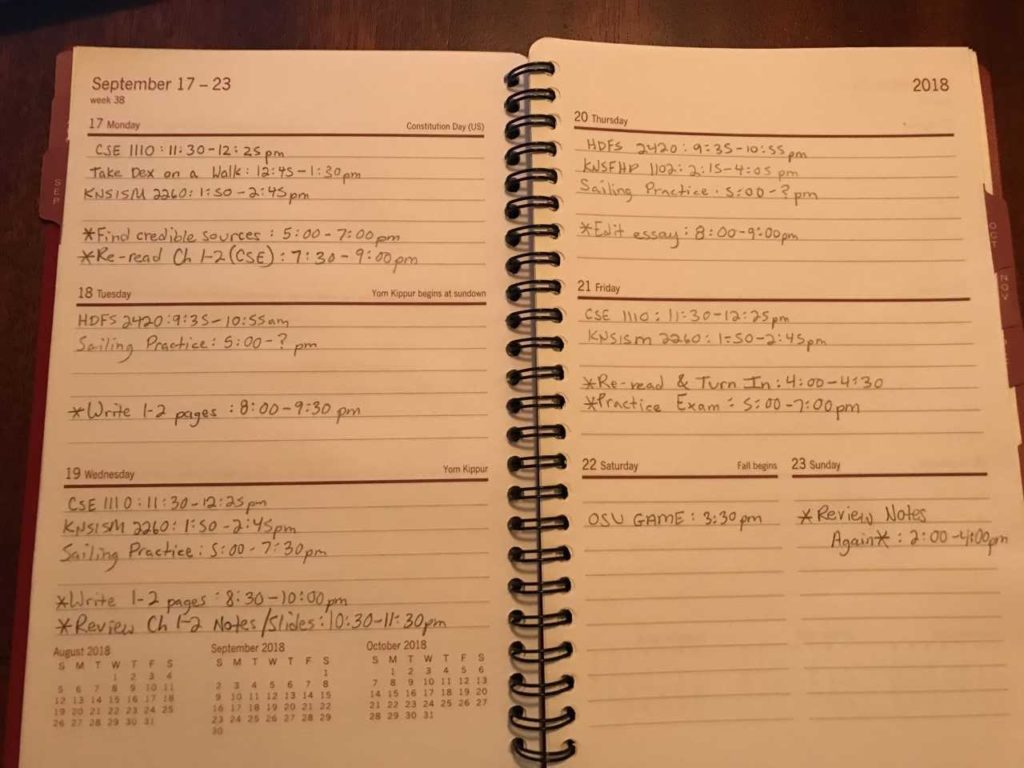 September 17 – 23
week 38
17 Monday Constitution Day (US)
CSE 1110: 11:30-12:25pm
Take Dex on a Walk: 12:45-1:30pm
KNSISM 2260: 1:50-2:45pm
*Find credible sources: 5:00-7:00pm
*Re-read Ch 1-2 (CSE): 7:30-9:00pm
18 Tuesday Yom Kippur begins at sundown
HDFS 2420: 9:35-10:55am
Sailing Practice: 5:00-? pm
*Write 1-2 pages: 8:00-9:30 pm
19 Wednesday Yom Kippur
CSE 1110: 11:30-12:25pm
KNSISM 2260: 1:50-2:45pm
Sailing Practice: 5:00-7:30pm
*Write 1-2 pages: 8:30-10:00pm
*Review Ch 1-2 Notes/Slides: 10:30-11:30pm
August 2018
S M T W T F S
1 2 3 4
5 6 7 8 9 10 11
12 13 14 15 16 17 18
19 20 21 22 23 24 25
26 27 28 29 30 31
September 2018
S M T W T F S
1
2 3 4 5 6 7 8
9 10 11 12 13 14 15
16 17 18 19 20 21 22
23 24 25 26 27 28 29
30
October 2018
S M T W T F S
1 2 3 4 5 6
7 8 9 10 11 12 13
14 15 16 17 18 19 20
21 22 23 24 25 26 27
28 29 30 31
SEP
2018
20 Thursday
HDFS 2420: 9:35-10:55pm
KNSFHP 1102: 2:15-4:05pm
Sailing Practice: 5:00-?pm
*Edit essay: 8:00-9:00pm
21 Friday
CSE 1110: 11:30-12:25pm
KNSISM 2260: 1:50-2:45pm
*Re-read & Turn In: 4:00-4:30
*Practice Exam: 5:00-7:00pm
22 Saturday Fall begins
OSU GAME: 3:30pm
23 Sunday
*Review Notes
Again*: 2:00-4:00pm
OCT
NOV